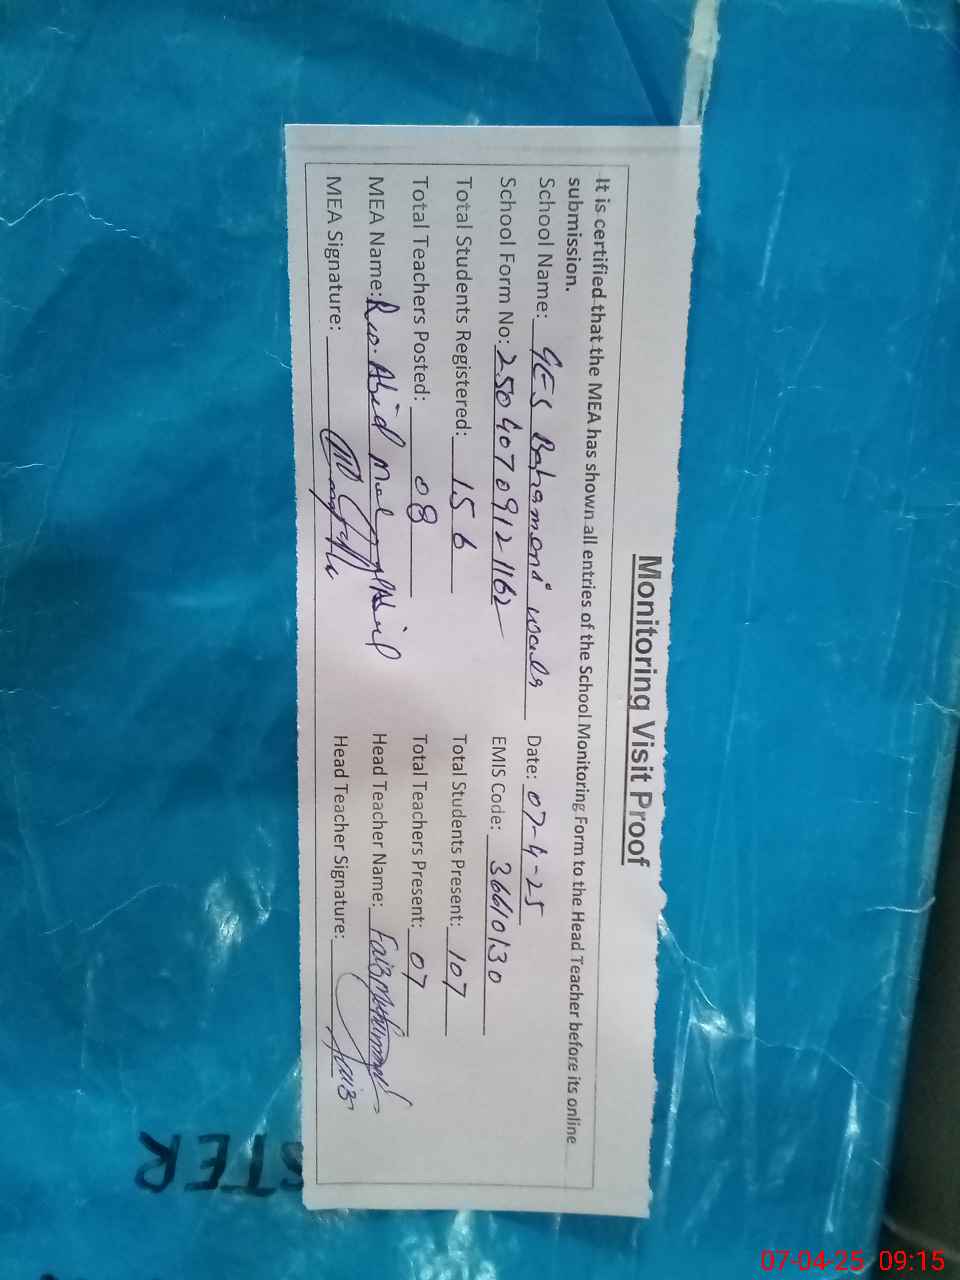 Monitoring Visit Proof
It is certified that the MEA has shown all entries of the School Monitoring Form to the Head Teacher before its online
submission.
School Name: GES Bahamani wala Date: 07-4-25
School Form No: 25040709121162 EMIS Code: 36610130
Total Students Registered: 156 Total Students Present: 107
Total Teachers Posted: 08 Total Teachers Present: 07
MEA Name: Rao Abid Head Teacher Name: Faiz Muhammad
MEA Signature: Head Teacher Signature: Faiz
STER
07-04-25 09:15